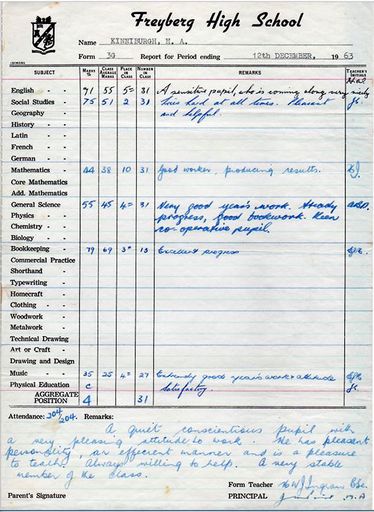 Freyberg High School
Name KINNIBURGH, M. A.
Form 3G Report for Period ending 12th DECEMBER, 1963
SUBJECT MARKS % CLASS AVERAGE MARKS PLACE IN CLASS NUMBER IN CLASS REMARKS TEACHER'S INITIALS
English - - 71 55 5= 31 A sensitive pupil, who is coming along very nicely
Social Studies - 75 51 2 31 Tries hard at all times. Pleasant
Geography - and helpful.
History - -
Latin - -
French - -
German - -
Mathematics - 44 38 10 31 Good worker, producing results.
Core Mathematics
Add. Mathematics
General Science 55 45 4= 31 Very good year's work. Steady
Physics - progress, good bookwork. Keen
Chemistry - - co-operative pupil.
Biology - -
Bookkeeping - 79 69 3= 13 Excellent progress
Commercial Practice
Shorthand -
Typewriting -
Homecraft -
Clothing - -
Woodwork -
Metalwork -
Technical Drawing
Art or Craft -
Drawing and Design
Music - - 35 25 4= 27 Extremely good year's work & attitude
Physical Education C Satisfactory.
AGGREGATE POSITION 4 31
Attendance: 204/204. Remarks:
A quiet conscientious pupil with
a very pleasing attitude to work. He has pleasant
personality, an efficient manner and is a pleasure
to teach. Always willing to help. A very stable
member of the class.
Form Teacher
Parent's Signature PRINCIPAL M.A